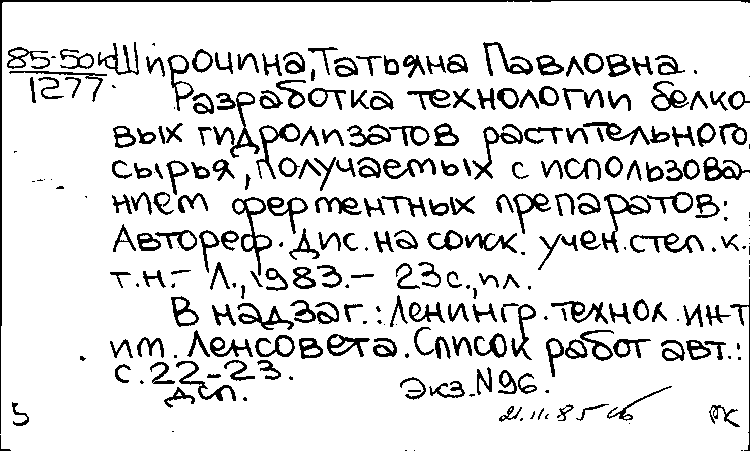 85-50кд Широчина, Татьяна Павловна.
1277. Разработка технологии белко-
вых гидролизатов растительного
сырья, получаемых с использова-
нием ферментных препаратов:
Автореф. дис. на соиск. учен. степ. к.
т.н. - Л., 1983. - 23с., ил.
В надзаг.: Ленингр. технол. ин-т
им. Ленсовета. Список работ авт.:
с. 22-23.
дсп. Экз. N96.
5 21.11.85 РК